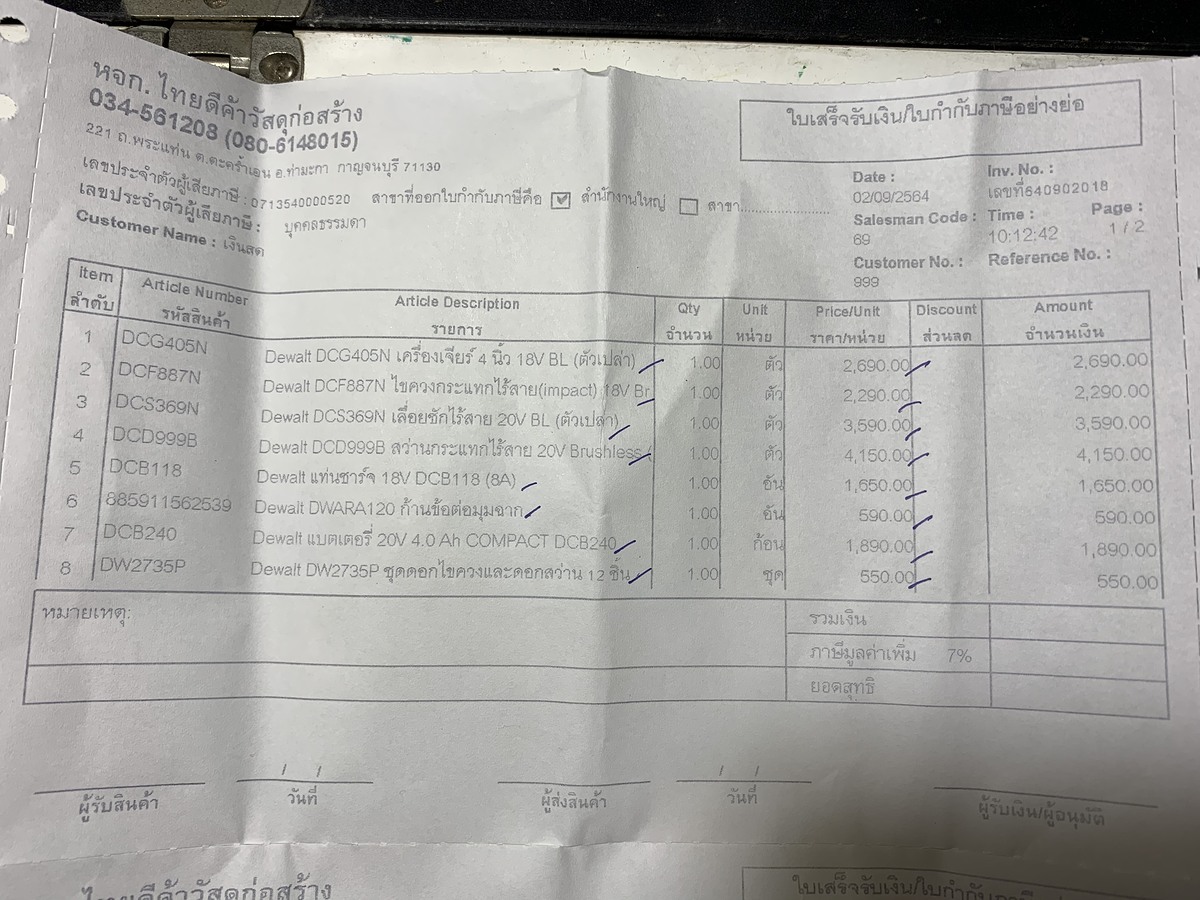 หจก. ไทยดีค้าวัสดุก่อสร้าง
034-561208 (080-6148015)
221 ถ.พระแท่น ต.ตะคร้ำเอน อ.ท่ามะกา กาญจนบุรี 71130
เลขประจำตัวผู้เสียภาษี : 0713540000520 สาขาที่ออกใบกำกับภาษีคือ ☑ สำนักงานใหญ่ ☐ สาขา......................
เลขประจำตัวผู้เสียภาษี : บุคคลธรรมดา
Customer Name : เงินสด
ใบเสร็จรับเงิน/ใบกำกับภาษีอย่างย่อ
Date : Inv. No. :
02/09/2564 เลขที่640902018
Salesman Code : Time : Page :
69 10:12:42 1 / 2
Customer No. : Reference No. :
999
Item Article Number Article Description Qty Unit Price/Unit Discount Amount
ลำดับ รหัสสินค้า รายการ จำนวน หน่วย ราคา/หน่วย ส่วนลด จำนวนเงิน
1 DCG405N Dewalt DCG405N เครื่องเจียร์ 4 นิ้ว 18V BL (ตัวเปล่า) 1.00 ตัว 2,690.00 2,690.00
2 DCF887N Dewalt DCF887N ไขควงกระแทกไร้สาย(impact) 18V Br 1.00 ตัว 2,290.00 2,290.00
3 DCS369N Dewalt DCS369N เลื่อยชักไร้สาย 20V BL (ตัวเปล่า) 1.00 ตัว 3,590.00 3,590.00
4 DCD999B Dewalt DCD999B สว่านกระแทกไร้สาย 20V Brushless ( 1.00 ตัว 4,150.00 4,150.00
5 DCB118 Dewalt แท่นชาร์จ 18V DCB118 (8A) 1.00 อัน 1,650.00 1,650.00
6 885911562539 Dewalt DWARA120 ก้านข้อต่อมุมฉาก 1.00 อัน 590.00 590.00
7 DCB240 Dewalt แบตเตอรี่ 20V 4.0 Ah COMPACT DCB240 1.00 ก้อน 1,890.00 1,890.00
8 DW2735P Dewalt DW2735P ชุดดอกไขควงและดอกสว่าน 12 ชิ้น 1.00 ชุด 550.00 550.00
หมายเหตุ: รวมเงิน
ภาษีมูลค่าเพิ่ม 7%
ยอดสุทธิ
/ / / /
ผู้รับสินค้า วันที่ ผู้ส่งสินค้า วันที่ ผู้รับเงิน/ผู้อนุมัติ
ไทยดีค้าวัสดุก่อสร้าง ใบเสร็จรับเงิน/ใบกำกับภาษี